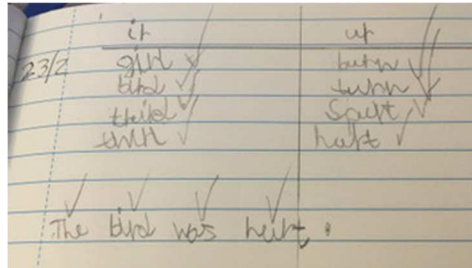 ir ur
23/2 girl burn
bird turn
third Spurt
hurt
The bird was hurt.